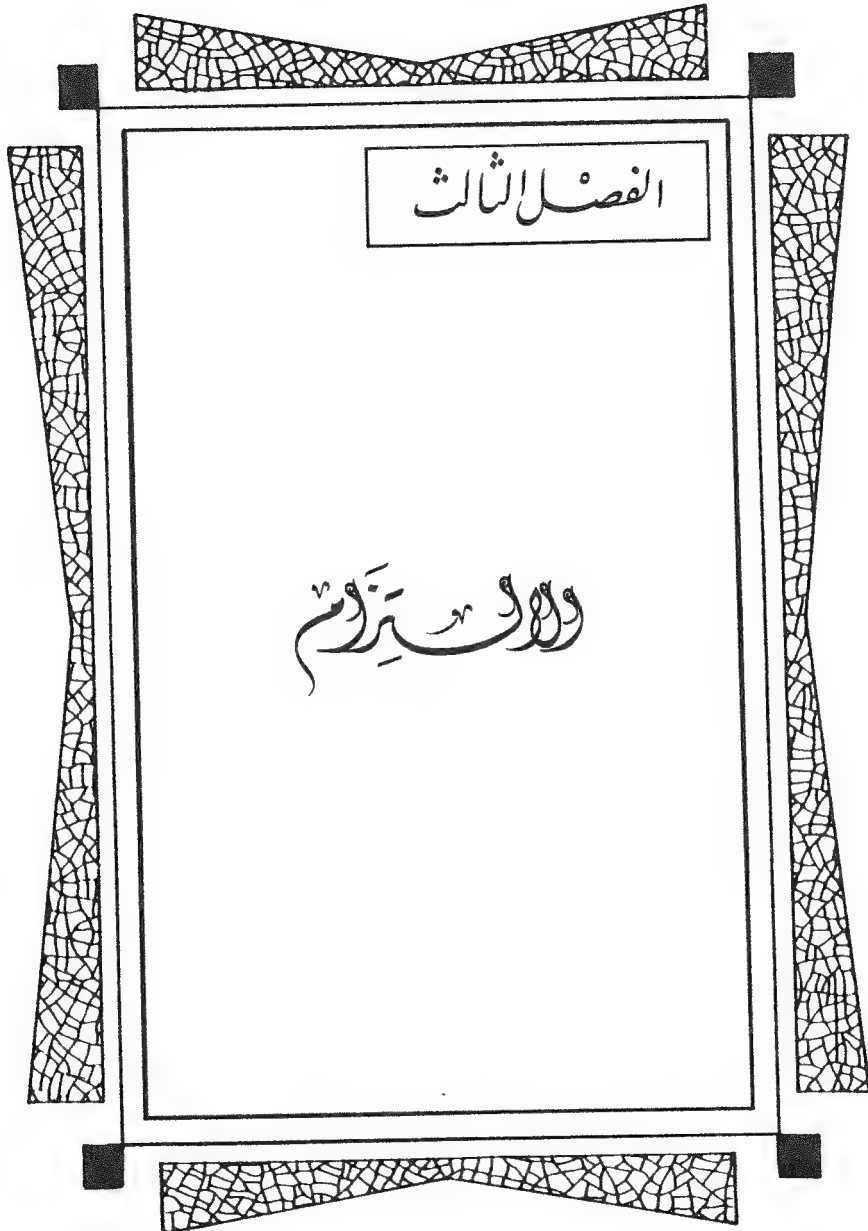 الفصل الثالث
الالتزام